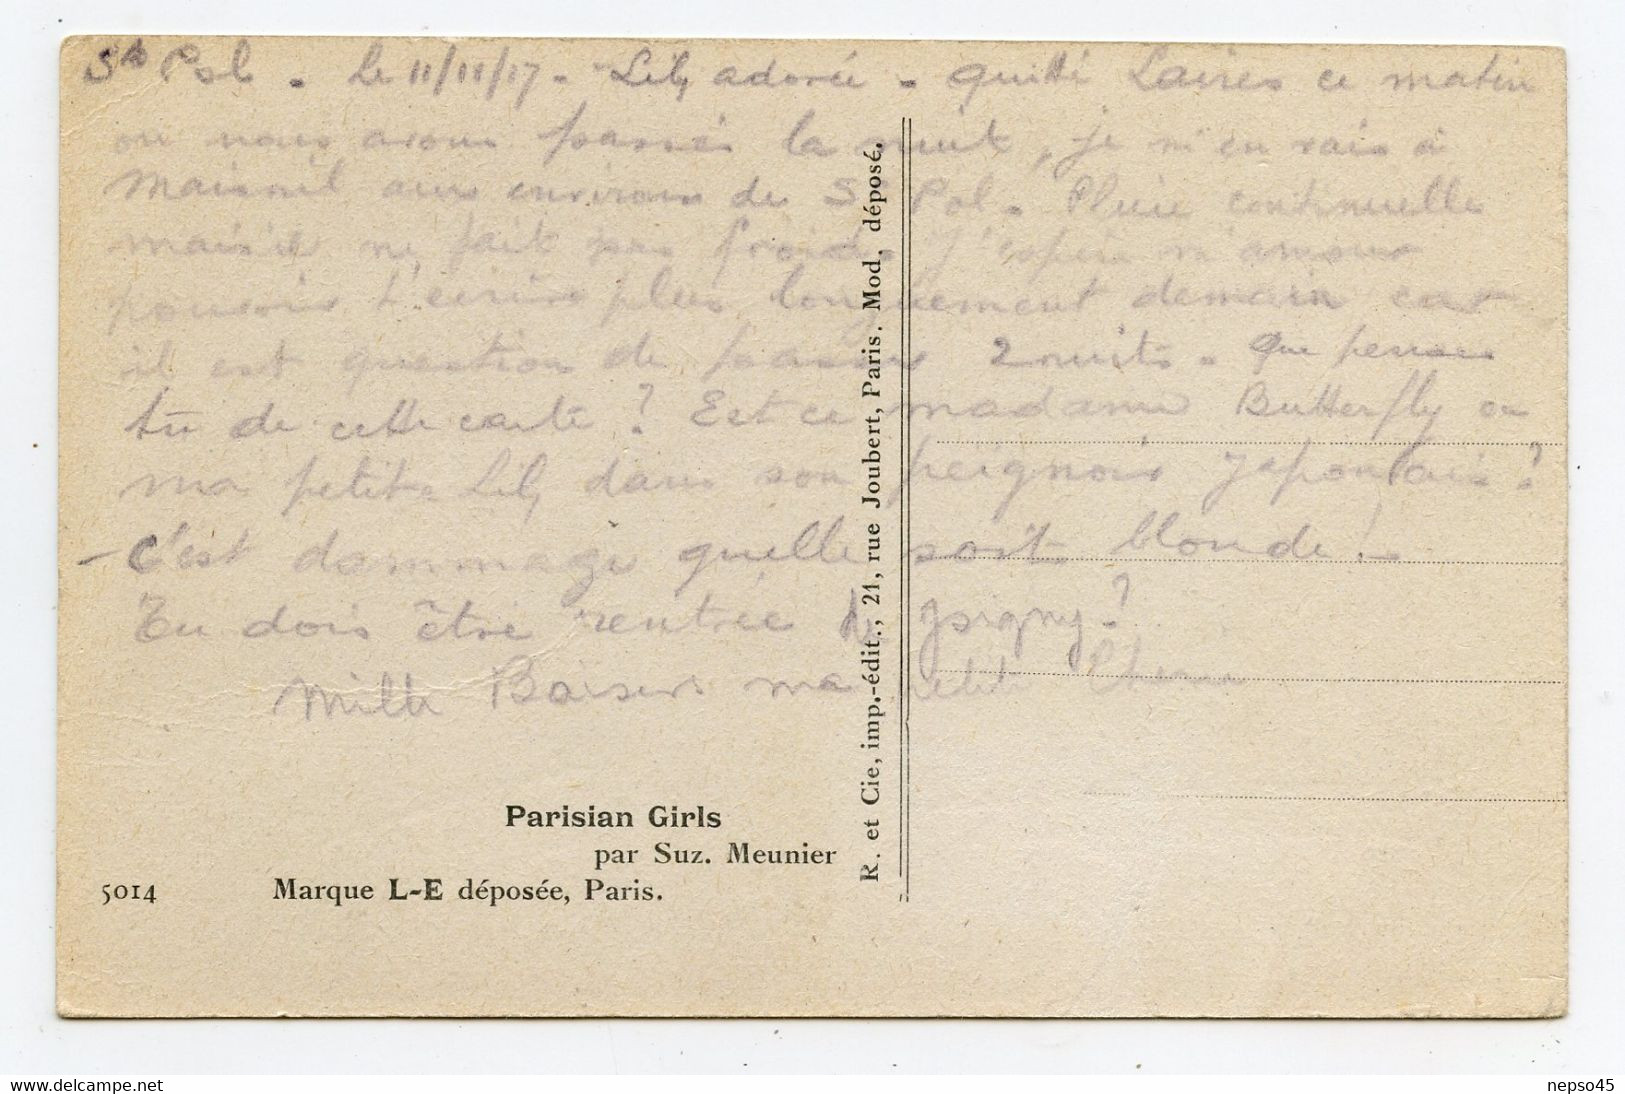 St Pol - le 11/11/17 - Lily adorée - quitté Laires ce matin
ou nous avons passés la nuit, je m'en vais à
Maisnil aux environs de St Pol. Pluie continuelle
mais il ne fait pas froid. J'espère m'amour
pouvoir t'écrire plus longuement demain car
il est question de passer 2 nuits. Que penses
tu de cette carte ? Est ce madame Butterfly ou
ma petite Lily dans son peignoir Japonais ?
- C'est dommage quelle soit blonde ! -
Tu dois être rentrée de Isigny ?
Mille Baisers ma petite Chérie
Parisian Girls
par Suz. Meunier
5014 Marque L-E déposée, Paris.
R. et Cie, imp.-édit., 21, rue Joubert, Paris. Mod. déposé.
delcampe.net
nepso45